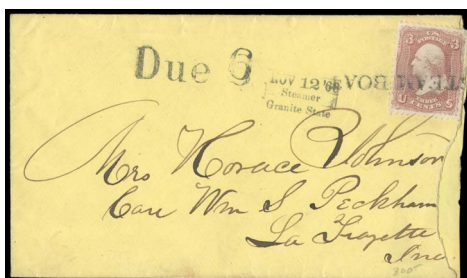 Due 6
NOV 12 '66
Steamer
Granite State
STEAM BOAT
3 U.S. 3
POSTAGE
U THREE S
CENTS
Mrs Horace Johnson
Care Wm S Peckham
La Fayette
Ina
300